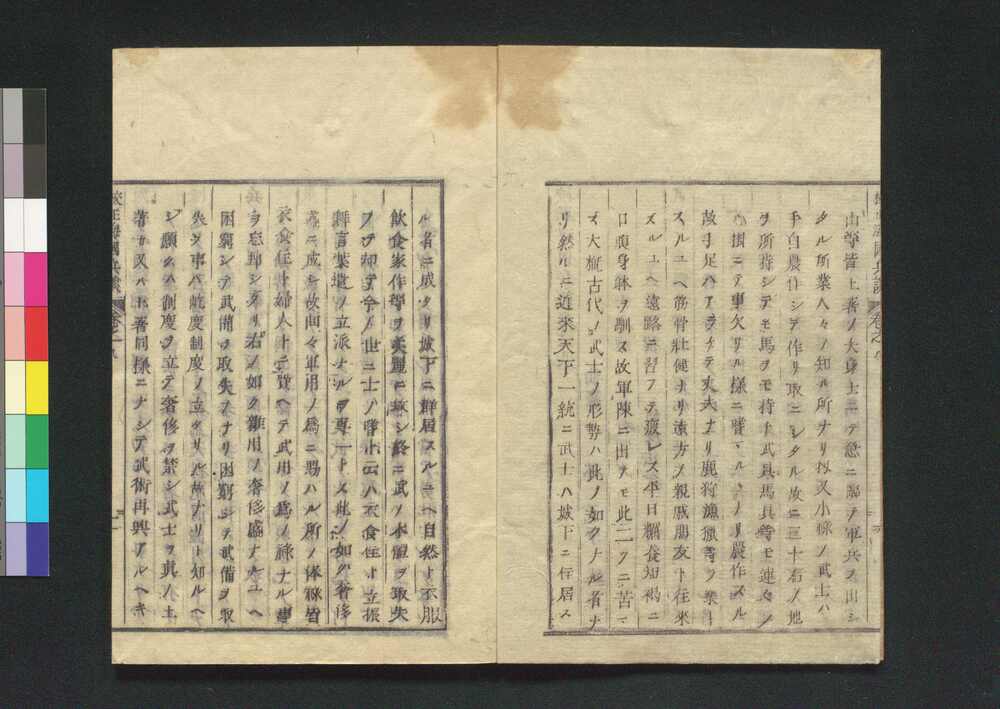 山等皆土着ノ大身士ニテ急ニ聊ヲ軍兵ヲ出シ
タル所業人々ノ知ル所ナリ扨又小祿ノ武士ハ
手自農作シテ作リ取ニシタル故ニ三十石ノ地
ヲ所持シテモ馬ヲモ持チ武具馬具等モ連々ノ
心掛ニテ事欠サル樣ニ嗜マルヽナリ農作スル
故手足ハアラクテ丈夫ナリ鹿狩漁獵等ヲ業ト
スルユヘ筋骨壯健ナリ遠方ノ親戚朋友ト往來
スルユヘ遠路ニ習フテ疲レス平日糲食短褐ニ
口腹身躰ヲ馴ス故軍陳ニ出テモ此二ツニ苦マ
ス大概古代ノ武士ノ形勢ハ此ノ如クナル者ナ
リ然ルニ近來天下一統ニ武士ハ城下ニ住居ス
ル者ニ成タリ城下ニ群居スルユヘ自然ト衣服
飲食家作等ヲ美麗ニ
シ終ニ武ノ本體ヲ取失
フテ却テ今ノ世ニ士ノ
云ハ衣食住ト立振
舞言葉遣ノ立派ナルヲ專一トス此ノ如ク奢侈
ニ成シ故面々軍用ノ爲ニ賜ハル所ノ俸祿皆
衣食住ト婦人トニ費ヘテ武用ノ爲ノ祿ナル事
ヲ忘却シタリ右ノ如ク雜用ノ奢侈盛ナルユヘ
困窮シテ武備ヲ取失フナリ困窮シテ武備ヲ取
失フ事ハ畢度制度ノ立タサル故ナリト知ルヘ
シ願クハ制度ヲ立テ奢侈ヲ禁シ武士ヲ眞ノ土
着カ又ハ土着同樣ニナシテ武術再興アルヘキ
校正海國兵談